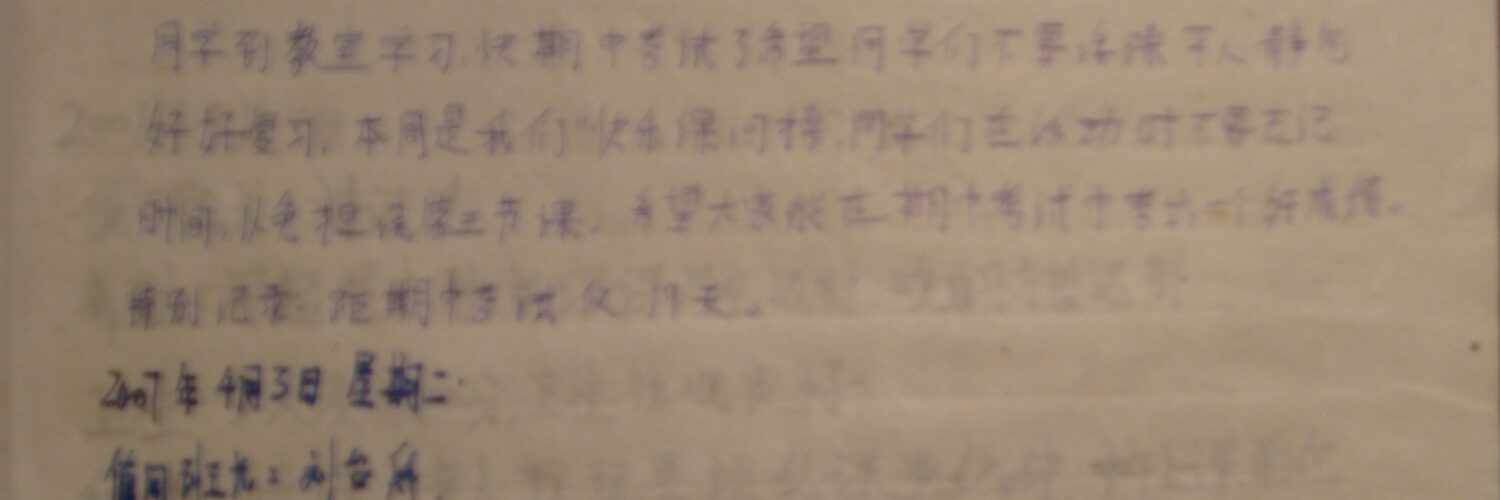 同学到教室学习,快期中考试了希望同学们不要
好好复习,本周是我们"快乐课间操,同学们在活动时不要忘记
时间,以免担误第二节课。希望大家能在期中考试中考出一个好成绩。
特别记录:距期中考试仅19天。
2007年4月3日 星期二
值周班长:刘